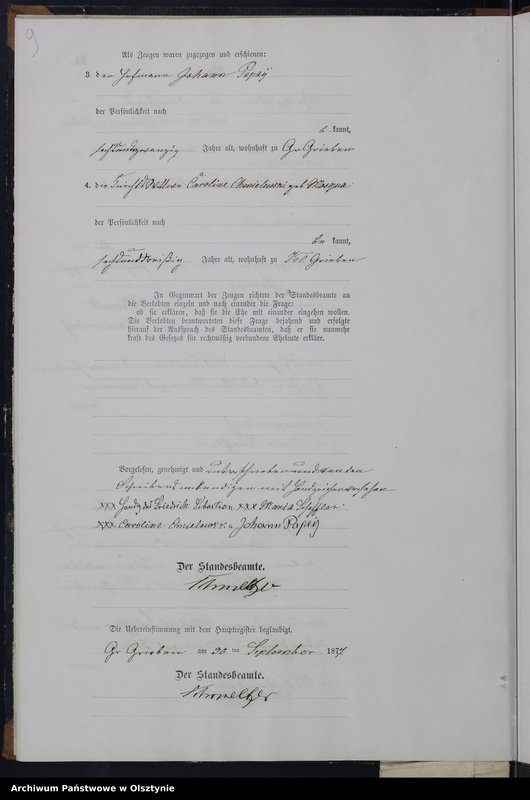 9
Als Zeugen waren zugezogen und erschienen:
3. der Hofmann Johann Papay
der Persönlichkeit nach
be kannt,
sechsundzwanzig Jahre alt, wohnhaft zu Gr Grieben
4. die Knechts Wittwe Caroline Chmielewski geb
der Persönlichkeit nach
be kannt,
sechsunddreißig Jahre alt, wohnhaft zu Kol Grieben
In Gegenwart der Zeugen richtete der Standesbeamte an
die Verlobten einzeln und nach einander die Frage:
ob sie erklären, daß sie die Ehe mit einander eingehen wollen.
Die Verlobten beantworteten diese Frage bejahend und erfolgte
hierauf der Ausspruch des Standesbeamten, daß er sie nunmehr
kraft des Gesetzes für rechtmäßig verbundene Eheleute erkläre.
Vorgelesen, genehmigt und unterschrieben und von den
Schreibensunkundigen mit Handzeichen versehen
xxx Handz des Friedrich Sebastian xxx Maria Scheffler
xxx Caroline Johann Papay
Der Standesbeamte.
Die Uebereinstimmung mit dem Hauptregister beglaubigt.
Gr Grieben am 30 ten September 1877
Der Standesbeamte.
Archiwum Państwowe w Olsztynie